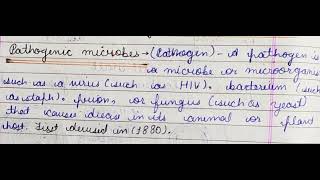 Pathogenic microbes → (Pathogen) - A pathogen is
a microbe or microorganis
such as a virus (such as HIV). bacterium (such
as staph). prion, or fungus (such as yeast)
that causes diecis in its animal or plant
host. First in (1880).